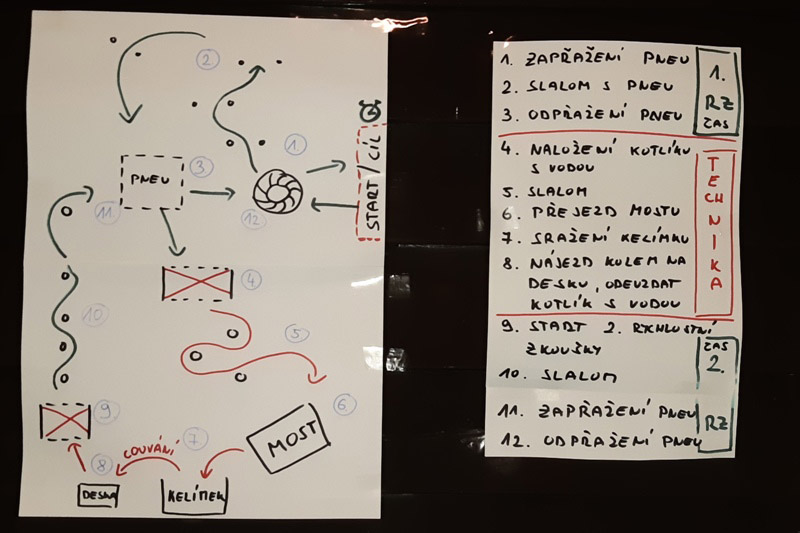 2
1
START / CÍL
PNEU
3
11
12
4
10
5
9
6
MOST
7
COUVÁNÍ
8
DESKA
KELÍMEK
1. ZAPŘAŽENÍ PNEU
2. SLALOM S PNEU
3. ODPŘAŽENÍ PNEU
1.
RZ
ČAS
4. NALOŽENÍ KOTLÍKU
S VODOU
5. SLALOM
6. PŘEJEZD MOSTU
7. SRAŽENÍ KELÍMKU
8. NÁJEZD KOLEM NA
DESKU, ODEVZDAT
KOTLÍK S VODOU
TECHNIKA
9. START 2. RYCHLOSTNÍ
ZKOUŠKY
10. SLALOM
11. ZAPŘAŽENÍ PNEU
12. ODPŘAŽENÍ PNEU
ČAS
2.
RZ